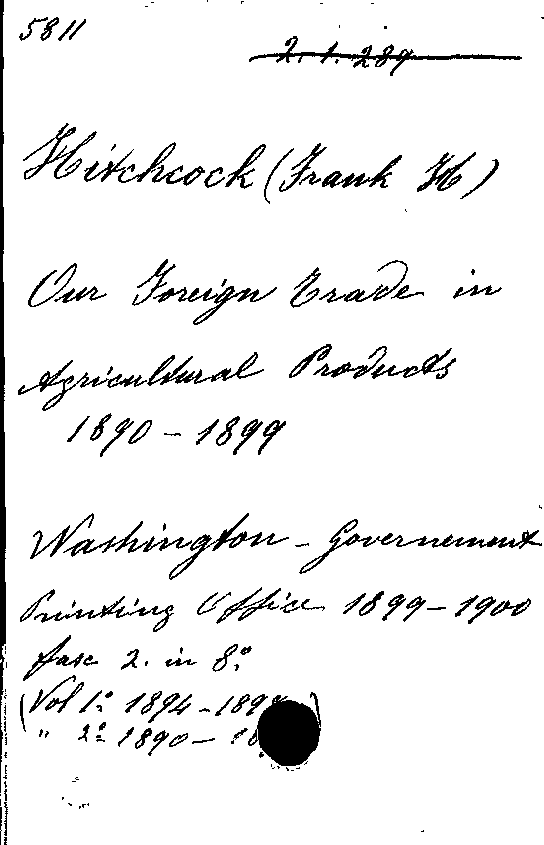 5811
2. 1. 289
Hitchcock (Frank H)
Our Foreign Trade in
Agricultural Products
1890 - 1899
Washington - Governement
Printing Office 1899 - 1900
fasc 2. in 8º
(Vol 1º 1894 - 189
" 2º 1890 -